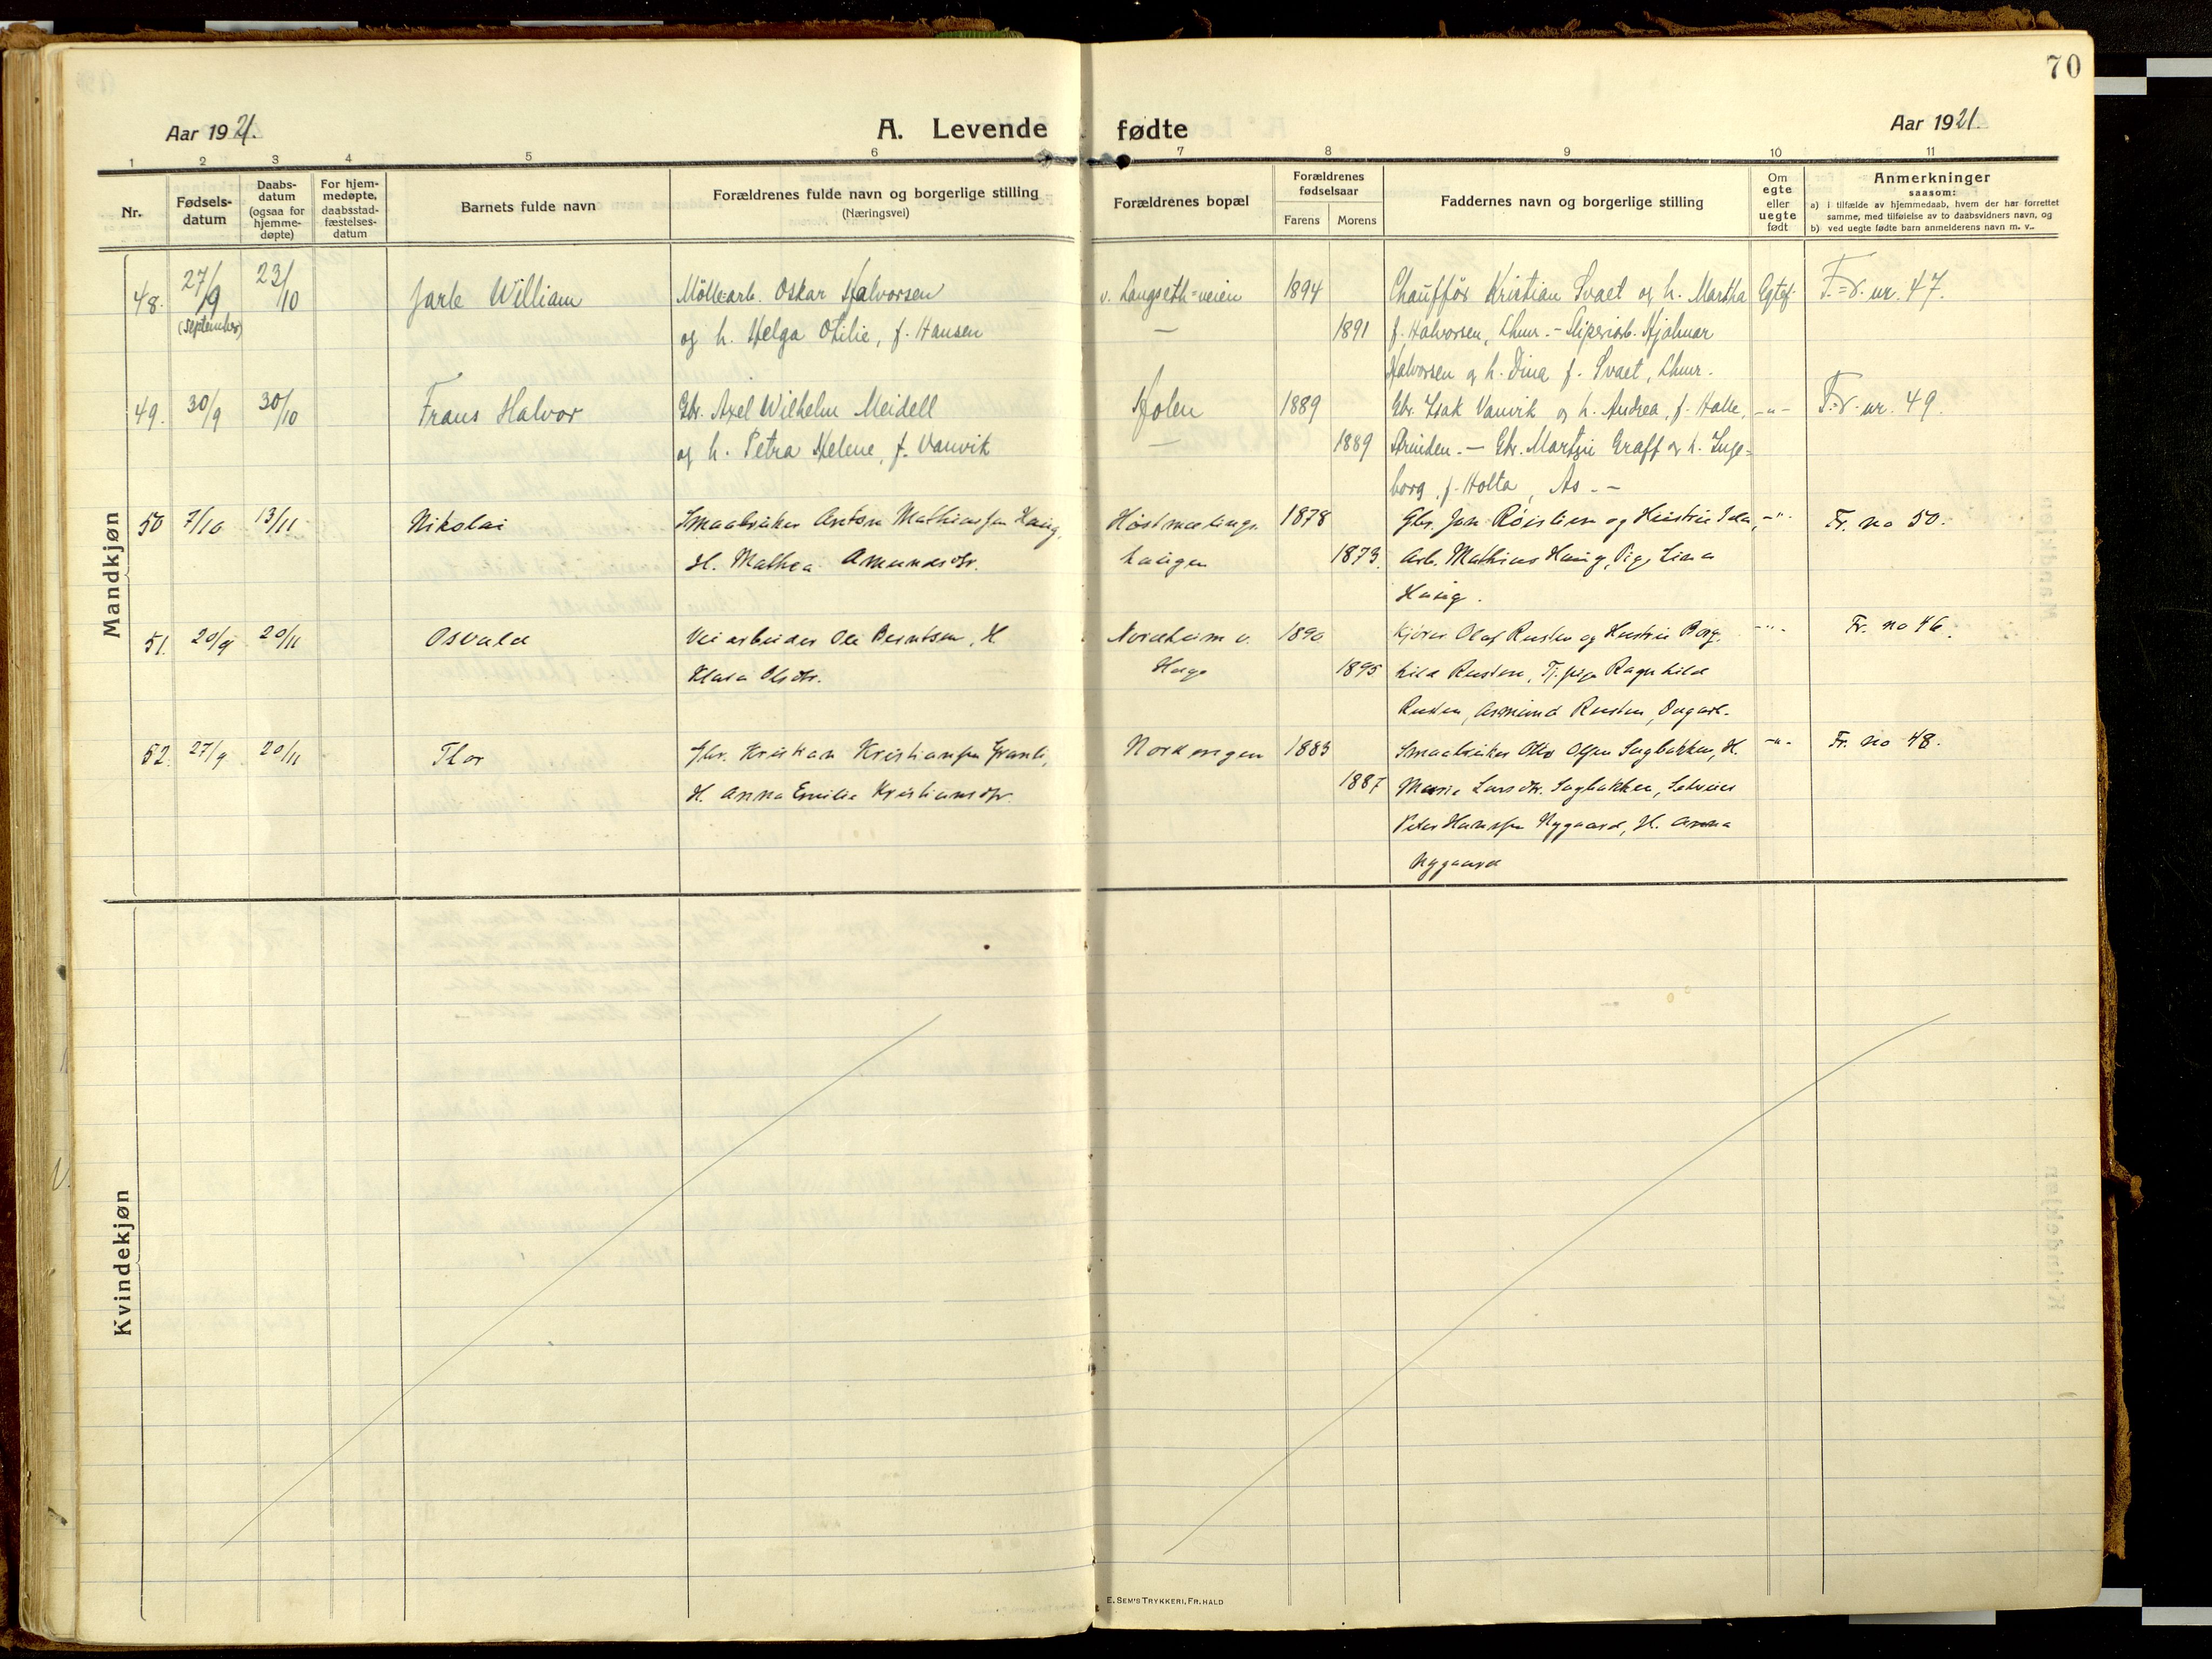 70
Aar 1921. A. Levende fødte Aar 1921.
1 2 3 4 5 6 7 8 9 10 11
Nr.
Fødsels-
datum
Daabs-
datum
(ogsaa for
hjemme-
døpte)
For hjem-
medøpte,
daabsstad-
fæstelses-
datum
Barnets fulde navn
Forældrenes fulde navn og borgerlige stilling
(Næringsvei)
Forældrenes bopæl
Forældrenes
fødselsaar
Farens Morens
Faddernes navn og borgerlige stilling
Om
egte
eller
uegte
født
Anmerkninger
saasom:
a) i tilfælde av hjemmedaab, hvem der har forrettet
samme, med tilføielse av to daabsvidners navn, og
b) ved uegte fødte barn anmelderens navn m. v..
Mandkjøn
48. 27/9 23/10 Jarle William Möllearb. Oskar Halvorsen v. Langseth=veien 1894 Chaufför Kristian Svaet og h. Martha Egtef. F.=r. nr. 47.
(September) og h. Helga Otilie, f. Hansen — 1891 f. Halvorsen, Lhmr. - Sliperiarb. Hjalmar
Halvorsen og h. Dina f. Svaet, Lhmr.
49. 30/9 30/10 Frans Halvor Gbr. Axel Wilhelm Meidell Holen 1889 Gbr. Isak Vanvik og h. Andrea, f. Halle, -"- F.=r. nr. 49.
og h. Petra Helene, f. Vanvik — 1889 — Gbr. Martin Graff og h. Inge-
borg, f. Holta, As. -
50 7/10 13/11 Nikolai Smaabruker Anton Mathiassen Haug, 1878 Gbr. Jon og Hustru -"- Fr. no 50.
H. Mathea Amundsdtr. haugen 1873. Arb. Mathias Haug, Pige Lina
Haug.
51. 20/9 20/11 Osvald Veiarbeider Ole Berntsen, H Nordheim v. 1890 Kjører Olaf Rusten og Hustru Borg- -"- Fr. no 46.
Klara Olsdtr. Hage 1895 hild Rusten, Tj. pige Ragnhild
Rusten, Asmund Rusten, Ungarl.
52. 27/9 20/11 Thor Gbr. Kristian Kristiansen H. Nordengen 1883 Smaabruker Otto Olsen Sagbakken, H. -"- Fr. no 48.
H. Anna Emilie Kristiansdtr. 1887 Marie Larsdtr. Sagbakken, Selveier
Peter Hansen Nygaard, H. Anna
Nygaard
Kvindekjøn
E. SEM'S TRYKKERI, FR. HALD